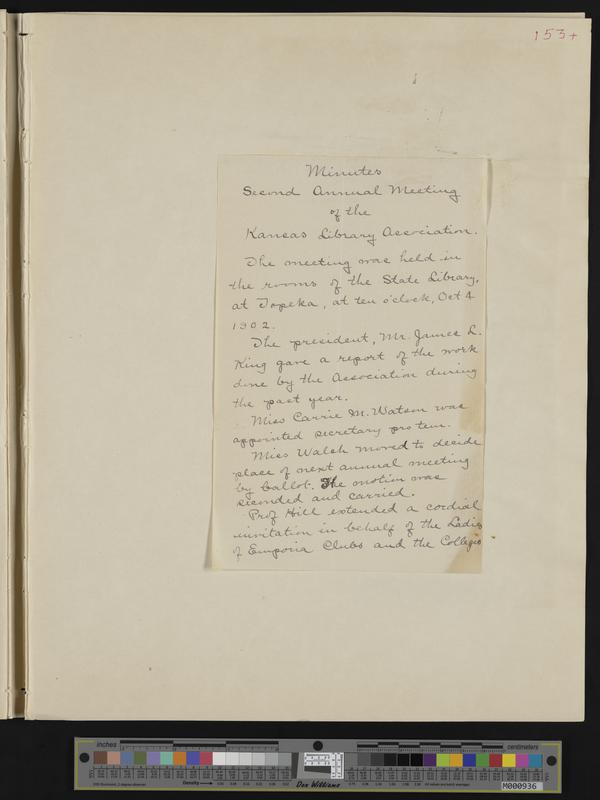 153+
Minutes
Second Annual Meeting
of the
Kansas Library Association.
The meeting was held in
the rooms of the State Library,
at Topeka, at ten o'clock, Oct 4
1902.
The president, Mr. James L.
King gave a report of the work
done by the Association during
the past year.
Miss Carrie M. Watson was
appointed secretary pro tem.
Miss Walsh moved to decide
place of next annual meeting
by ballot. The motion was
seconded and carried.
Prof Hill extended a cordial
invitation in behalf of the Ladies
of Emporia Clubs and the Colleges
inches
centimeters
Density
Don Williams
M000936